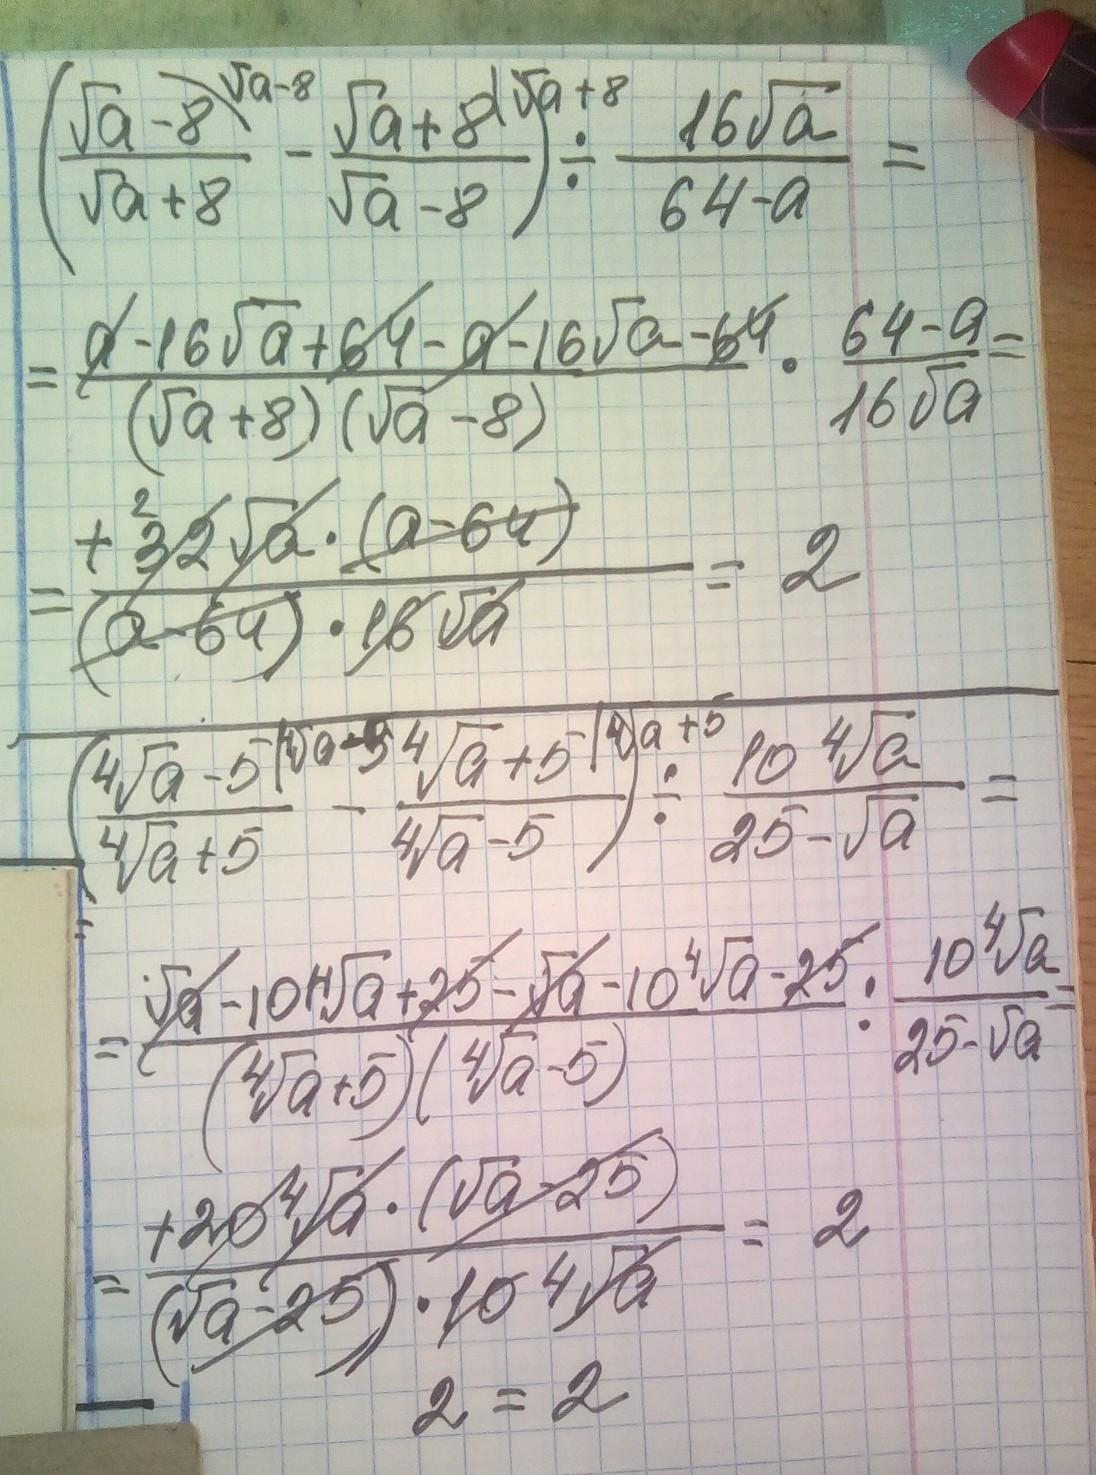 ((√a-8)/(√a+8) |√a-8 - (√a+8)/(√a-8) |√a+8) ÷ 16√a/(64-a) =
= (a-16√a+64-a-16√a-64)/((√a+8)(√a-8)) · (64-a)/(16√a) =
= (+32√a·(a-64))/((a-64)·16√a) = 2
((⁴√a-5)/(⁴√a+5) |⁴√a-5 - (⁴√a+5)/(⁴√a-5) |⁴√a+5) ÷ 10⁴√a/(25-√a) =
= (√a-10⁴√a+25-√a-10⁴√a-25)/((⁴√a+5)(⁴√a-5)) : 10⁴√a/(25-√a) =
= (+20⁴√a·(√a-25))/((√a-25)·10⁴√a) = 2
2 = 2